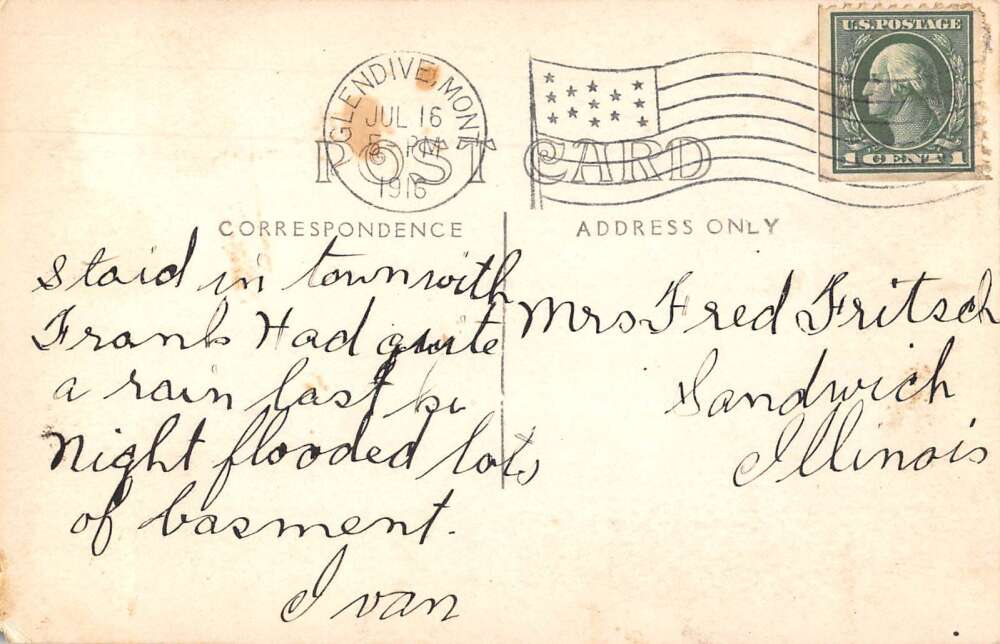 U.S. POSTAGE
1 CENT 1
GLENDIVE, MONT.
JUL 16
5 PM
1916
POST CARD
CORRESPONDENCE
ADDRESS ONLY
Staid in town with
Frank Had quite
a rain last
Night flooded lots
of basment.
Ivan
Mrs Fred Fritsch
Sandwich
Illinois